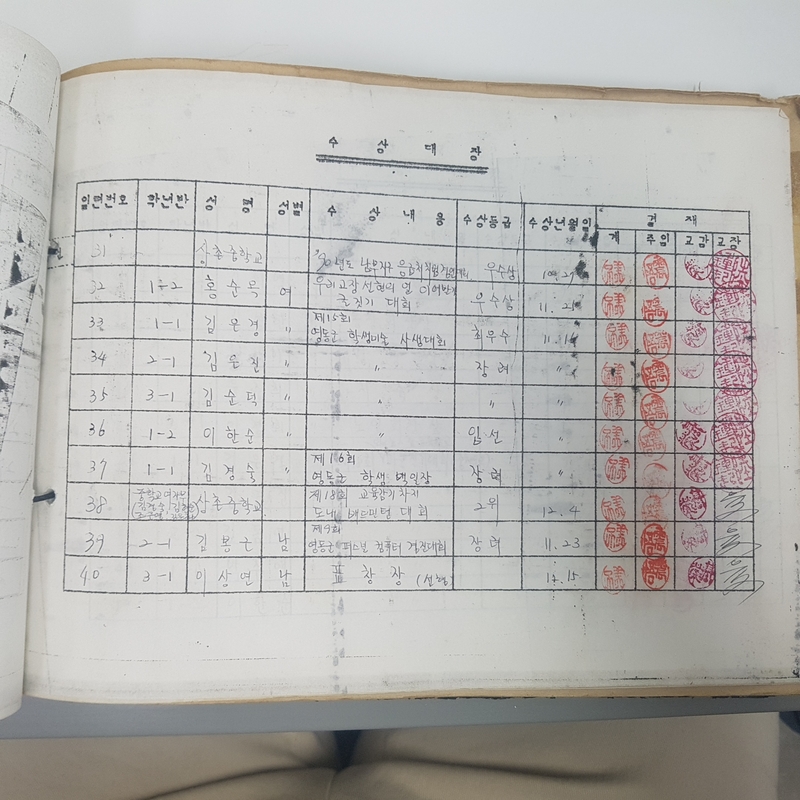 수 상 대 장
일련번호 학년반 성 명 성별 수 상 내 용 수상등급 수상년월일 결 재
계 주임 교감 교장
31 상촌중학교 '90년도 우수상 10.29
32 1-2 홍순옥 여 우리고장 선현의 얼 이어받기
글짓기 대회 우수상 11.21
33 1-1 김은경 〃 제15회
영동군 학생미술 사생대회 최우수 11.16
34 2-1 김은진 〃 〃 장려 〃
35 3-1 김순덕 〃 〃 〃
36 1-2 이한순 〃 〃 입선 〃
37 1-1 김경숙 〃 제16회
영동군 학생 백일장 장려 〃
38 상촌중학교 제18회 교육감기차지
도내 배드민턴 대회 2위 12.4
39 2-1 김봉근 남 제9회
영동군 퍼스널 컴퓨터 경진대회 장려 11.23
40 3-1 이상연 남 표 창 장 (선행) 12.15